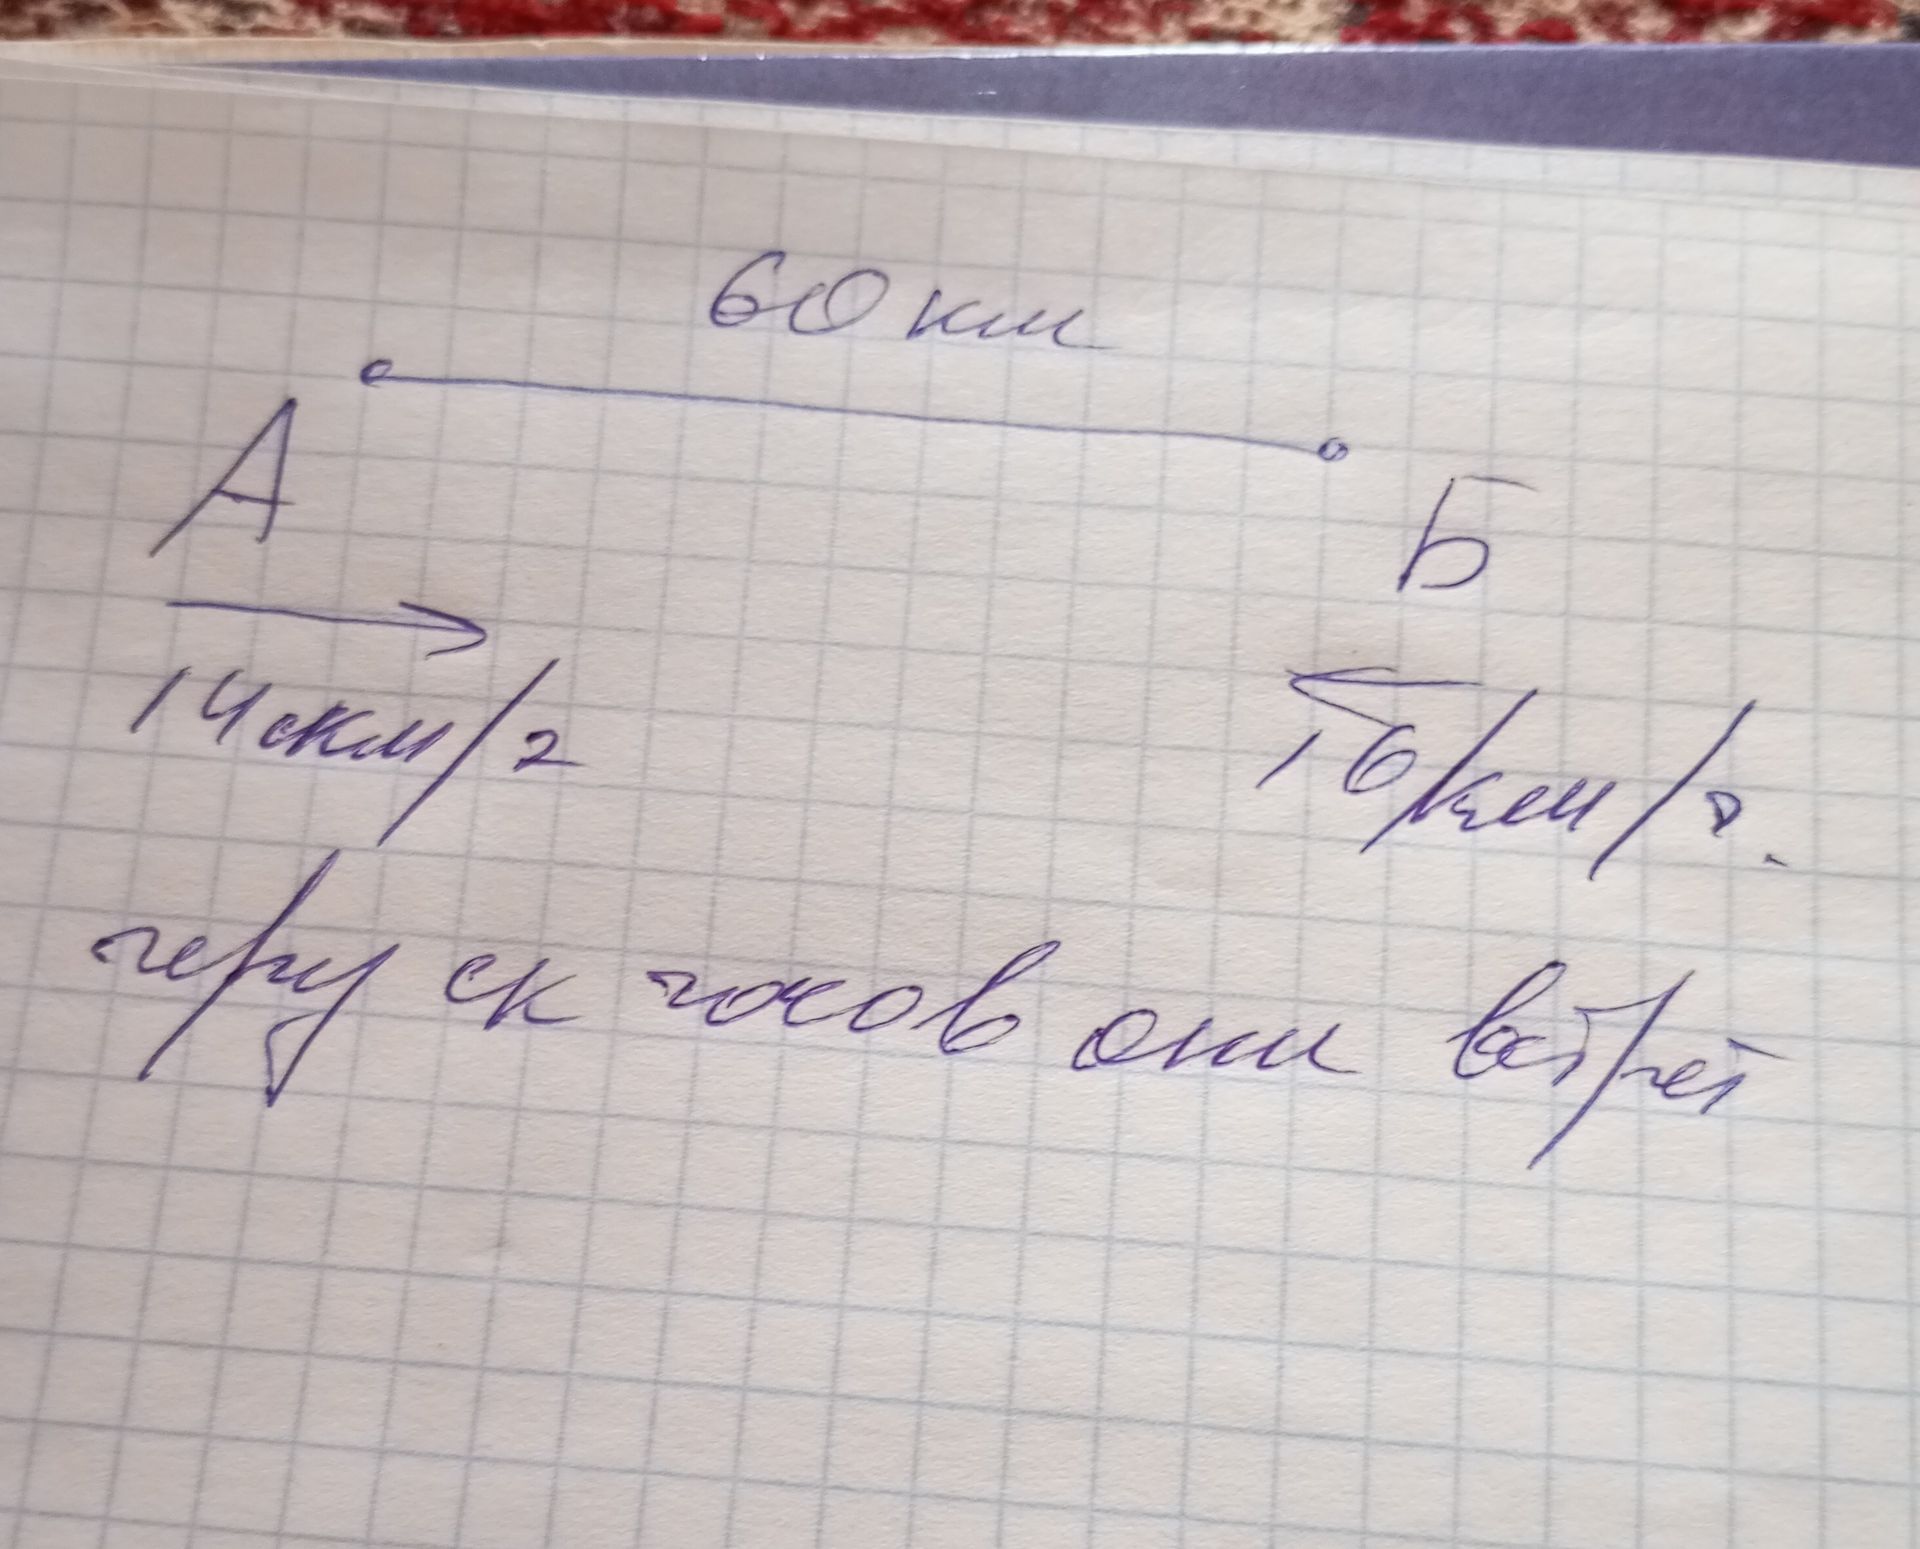 60 км
А
Б
14 км/ч
16 км/ч.
через ск часов они встрет